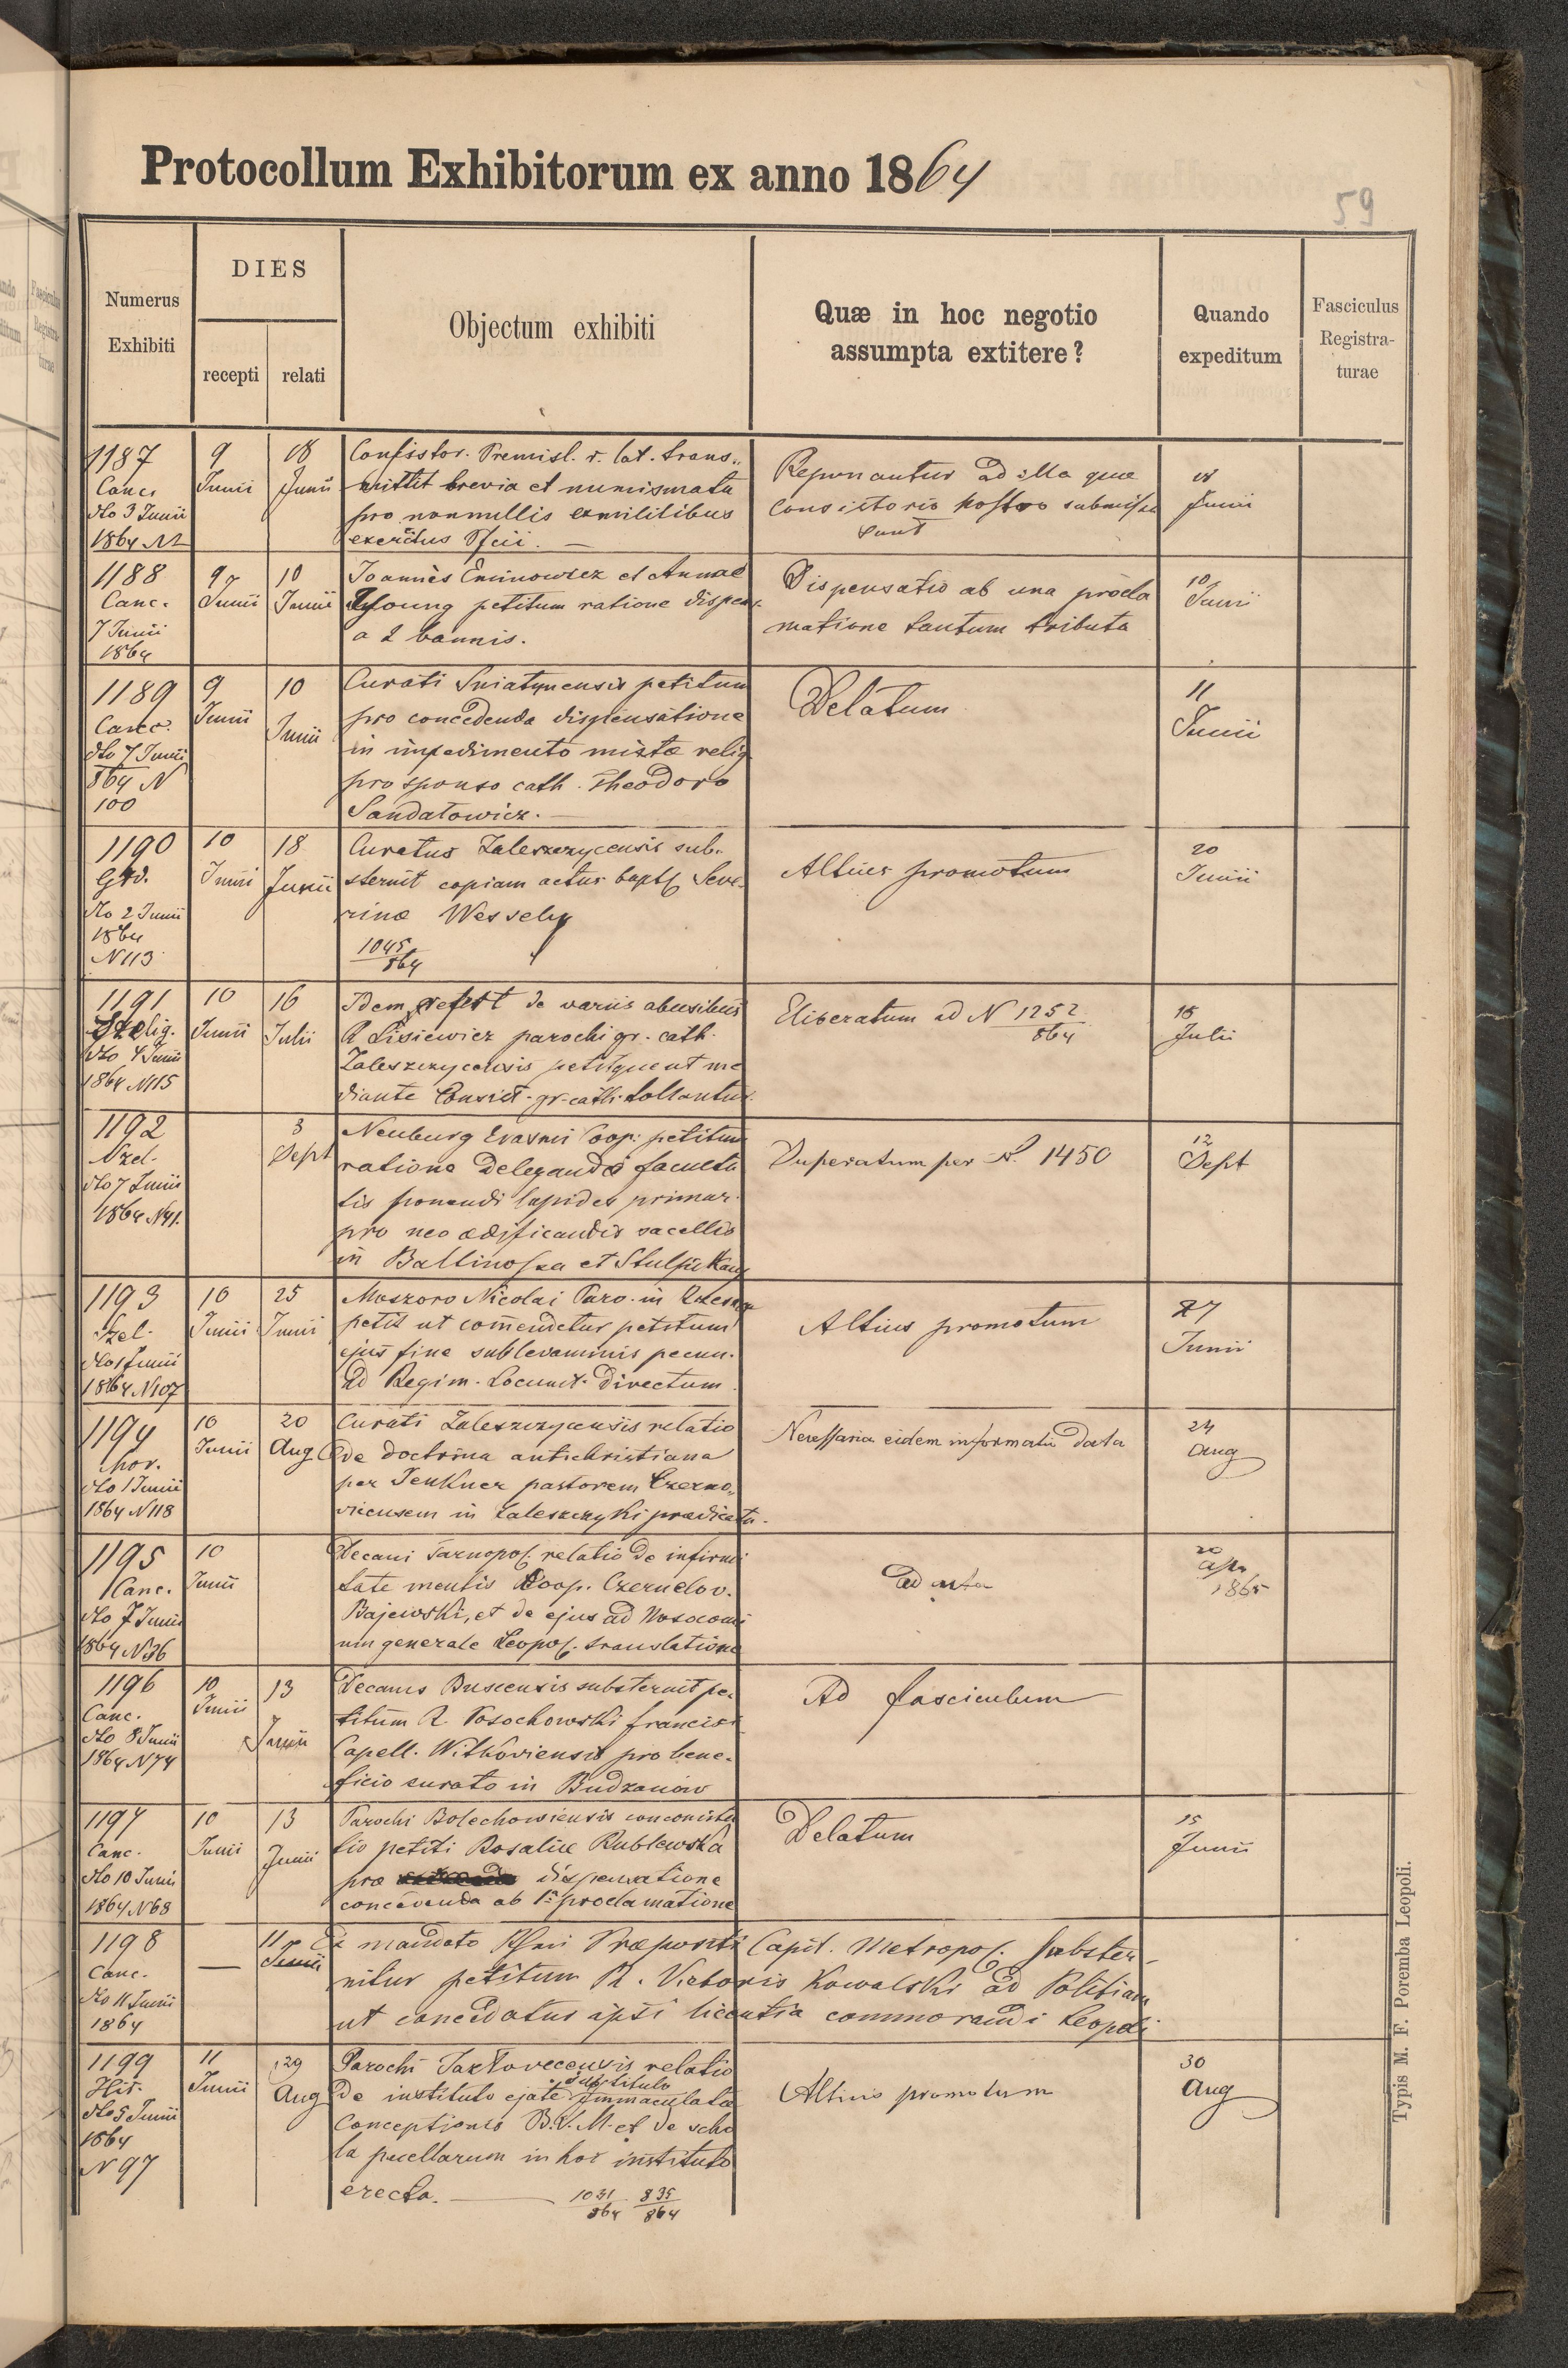 Protocollum Exhibitorum ex anno 1864
59
Numerus Exhibiti
DIES
recepti
relati
Objectum exhibiti
Quæ in hoc negotio
assumpta extitere?
Quando
expeditum
Fasciculus
Registra-
turae
1187
Canc.
dto 3 Junii
1864
9
Junii
18
Junii
Consistor. Premisl. r. lat. trans„
mittit brevia et numismata
pro nonnullis exmilitibus
exercitus
Reponantur ad illa quae
Consistorio nostro submissa
sunt
18
Junii
1188
Canc.
7 Junii
1864
9
Junii
10
Junii
Joannis Eminowicz et Annae
Young petitum ratione dispens.
a 2 bannis.
Dispensatio ab una procla
matione tantum tributa
10
Junii
1189
Canc.
dto 7 Junii
864 N
100
9
Junii
10
Junii
Curati Sniatynensis petitum
pro concedenda dispensatione
in impedimento mixtæ relig
pro sponso cath. Theodoro
Sandatowicz.
Delatum
11
Junii
1190
Grd.
dto 2 Junii
1864
N 113
10
Junii
18
Junii
Curatus Zaleszczycensis sub-
sternit copiam actus bapt. Seve-
rinæ Wessely
1045
864
Altius promotum
20
Junii
1191
dto 4 Junii
1864 N115
10
Junii
16
Julii
Idem refert de variis abusibus
R Lisiewicz parochi gr. cath.
Zaleszczycensis petitque ut me
diante Consist. gr-cath. tollantur
Eliberatum ad N 1252
864
18
Julii
1192
dto 7 Junii
1864 N41.
3
Sept
Neuburg Erasmi Coop: petitum
ratione delegandæ faculta
tis ponendi lapides primar.
pro neo ædificandis sacellis
in et
Superatum per N. 1450
12
Sept
1193
dto 1 Junii
1864 N107
10
Junii
25
Junii
Moszoro Nicolai Paro. in
petit ut comendetur petitum
ejus fine sublevaminis pecun.
ad Regim. Locumt. directum
Altius promotum
27
Junii
1194
hor.
dto 1 Junii
1864 N118
10
Junii
20
Aug
Curati Zaleszczycensis relatio
de doctrina antichristiana
per Jenkner pastorem Czerno„
vicensem in Zaleszczyki prædicata.
Necessaria eidem informatio data
24
Aug
1195
Canc.
dto 7 Junii
1864 N36
10
Junii
Decani Tarnopol. relatio de infirmi
tate mentis Coop. Czernelov.
Bajewski, et de ejus ad Nosocomi
um generale Leopol. translatione
ad acta
20
Apr
1865
1196
Canc.
dto 8 Junii
1864 N74
10
Junii
13
Junii
Decanus Buscensis substernit pe-
titum R. Posochowski Francisci
Capell. Witkoviensis pro bene-
ficio curato in Budzanow
Ad fasciculum
1197
Canc.
dto 10 Junii
1864 N68
10
Junii
13
Junii
Parochi Bolechowiensis
tio petiti Rosaliæ Rublewska
pro dispensatione
concedenda ab 1a proclamatione
Delatum
15
Junii
1198
Canc.
dto 11 Junii
1864
—
11
Junii
Ex mandato Præpositi Capit. Metropol. subster-
nitur petitum R. Victoris Kowalski ad Politiam
ut concedatur ipsi licentia commorandi Leopoli
1199
Hit.
dto 5 Junii
1864
N 97
11
Junii
29
Aug
Parochi Jazlovecensis relatio
sub titulo
de instituto ejate Immaculatæ
Conceptionis B.V.M. et de scho
la puellarum in hoc instituto
erecta.
1031 835
864 864
Altius promotum
30
Aug
Typis M. F. Poremba Leopoli.